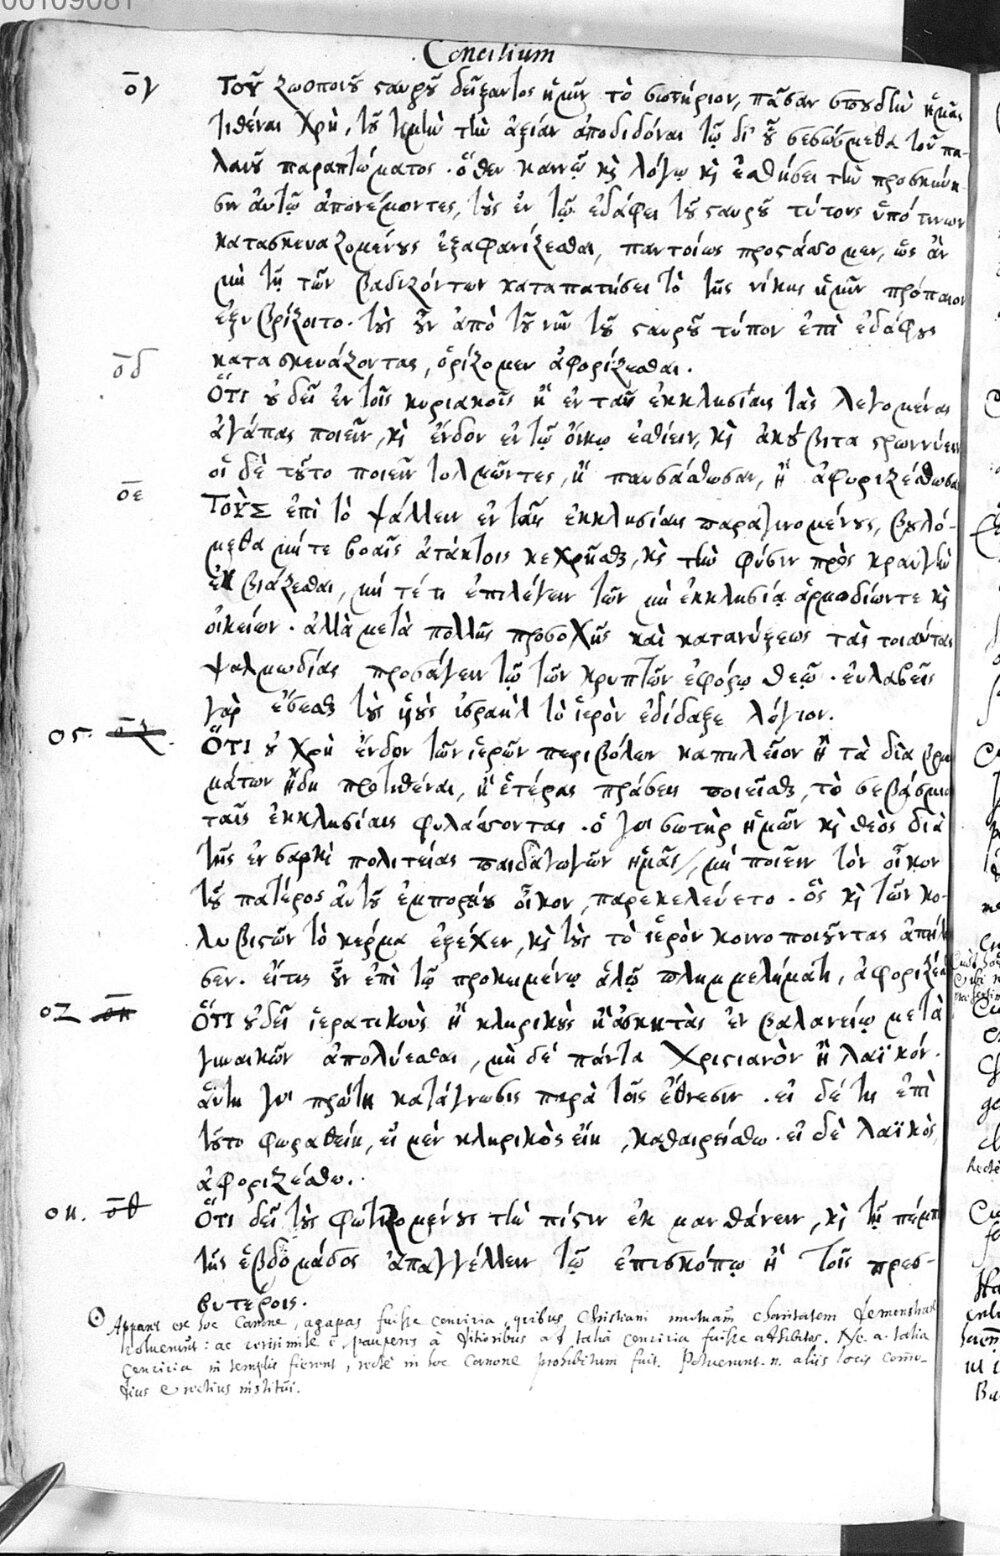 00109081
Concilium
ογ Τοῦ ζωοποιοῦ σταυροῦ δείξαντος ἡμῖν τὸ σωτήριον, πᾶσαν σπουδὴν ἡμᾶς
τιθέναι χρὴ, τοῦ τιμὴν τὴν ἀξίαν ἀποδιδόναι τῷ δι' οὗ σεσώσμεθα τοῦ πα-
λαιοῦ παραπτώματος. ὅθεν καὶ νῷ καὶ λόγῳ καὶ ἐσθήσει τὴν προσκύνη-
σιν αὐτῷ ἀπονέμοντες, τοὺς ἐν τῷ ἐδάφει τοῦ σταυροῦ τύπους ὑπό τινων
κατασκευαζομένους ἐξαφανίζεσθαι, παντοίως προστάσσομεν, ὡς ἂν
μὴ τῇ τῶν βαδιζόντων καταπατήσει τὸ τῆς νίκης ἡμῖν τρόπαιον
ἐξυβρίζοιτο. τοὺς οὖν ἀπὸ τοῦ νῦν τοῦ σταυροῦ τύπον ἐπὶ ἐδάφους
κατασκευάζοντας, ὁρίζομεν ἀφορίζεσθαι.
οδ Ὅτι οὐ δεῖ ἐν τοῖς κυριακοῖς ἢ ἐν ταῖς ἐκκλησίαις τὰς λεγομένας
ἀγάπας ποιεῖν, καὶ ἔνδον ἐν τῷ οἴκῳ ἐσθίειν, καὶ ἀκούβιτα στρωννύειν
οἱ δὲ τοῦτο ποιεῖν τολμῶντες, ἢ παυσάσθωσαν, ἢ ἀφοριζέσθωσαν
οε Τοὺς ἐπὶ τὸ ψάλλειν ἐν ταῖς ἐκκλησίαις παραγινομένους, βουλό-
μεθα μήτε βοαῖς ἀτάκτοις κεχρῆσθαι, καὶ τὴν φύσιν πρὸς κραυγὴν
ἐκβιάζεσθαι, μήτε τι ἐπιλέγειν τῶν μὴ ἐκκλησίᾳ ἁρμοδίων τε καὶ
οἰκείων. ἀλλὰ μετὰ πολλῆς προσοχῆς καὶ κατανύξεως τὰς τοιαύτας
ψαλμωδίας προσάγειν τῷ τῶν κρυπτῶν ἐφόρῳ θεῷ. εὐλαβεῖς
γὰρ ἔσεσθαι τοὺς υἱοὺς ἰσραὴλ τὸ ἱερὸν ἐδίδαξε λόγιον.
ος. Ὅτι οὐ χρὴ ἔνδον τῶν ἱερῶν περιβόλων καπηλεῖον ἢ τὰ διὰ βρω
μάτων εἴδη προτιθέναι, ἢ ἑτέρας πράσεις ποιεῖσθαι, τὸ σεβάσμιον
ταῖς ἐκκλησίαις φυλάσσοντας. ὁ γὰρ σωτὴρ ἡμῶν καὶ θεὸς διὰ
τῆς ἐν σαρκὶ πολιτείας παιδαγωγῶν ἡμᾶς, μὴ ποιεῖν τὸν οἶκον
τοῦ πατέρος αὐτοῦ ἐμπορίου οἶκον, παρεκελεύετο. ὃς καὶ τῶν κο-
λυβιστῶν τὸ κέρμα ἐξέχεεν, καὶ τοὺς τὸ ἱερὸν κοινοποιοῦντας ἀπήλα
σεν. εἴτις οὖν ἐπὶ τῷ προκειμένῳ ἁλῷ πλημμελήματι, ἀφοριζέσ
οζ Ὅτι οὐ δεῖ ἱερατικοὺς ἢ κληρικοὺς ἢ ἀσκητὰς ἐν βαλανείῳ μετὰ
γυναικῶν ἀπολύεσθαι, μὴ δὲ πάντα Χριστιανὸν ἢ λαϊκόν.
αὕτη γὰρ πρώτη κατάγνωσις παρὰ τοῖς ἔθνεσιν. εἰ δέ τις ἐπὶ
τοῦτο φωραθείη, εἰ μὲν κληρικὸς εἴη, καθαιρείσθω. εἰ δὲ λαϊκὸς,
ἀφοριζέσθω.
οη. οθ Ὅτι δεῖ τοὺς φωτιζομένους τὴν πίστιν ἐκμανθάνειν, καὶ τῇ πέμπτῃ
τῆς ἑβδομάδος ἀπαγγέλλειν τῷ ἐπισκόπῳ ἢ τοῖς πρεσ-
βυτέροις.
Apparet ex hoc Canone, agapas fuisse convivia, quibus Christiani mutuam charitatem demonstrare
voluerunt: ac verisimile est pauperes à ditioribus ad talia convivia fuisse adhibitos. Ne. a. talia
convivia in templis fierent, rectè in hoc Canone prohibitum fuit. Potuerunt. n. aliis locis commo-
dius & rectius institui.